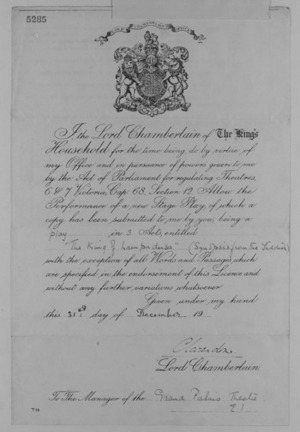 5285
I the Lord Chamberlain of The King's
Household for the time being do by virtue of
my Office and in pursuance of powers given to me
by the Act of Parliament for regulating Theatres,
6 & 7 Victoria, Cap. 68, Section 12, Allow the
Performance of a new Stage Play, of which a
copy has been submitted to me by you, being a
play in 3 Acts, entitled
"The King
with the exception of all Words and Passages which
are specified in the endorsement of this Licence and
without any further variations whatsoever
Given under my hand
this 31st day of December 19
Clarendon
Lord Chamberlain
To The Manager of the Grand Palais Theatre
E1